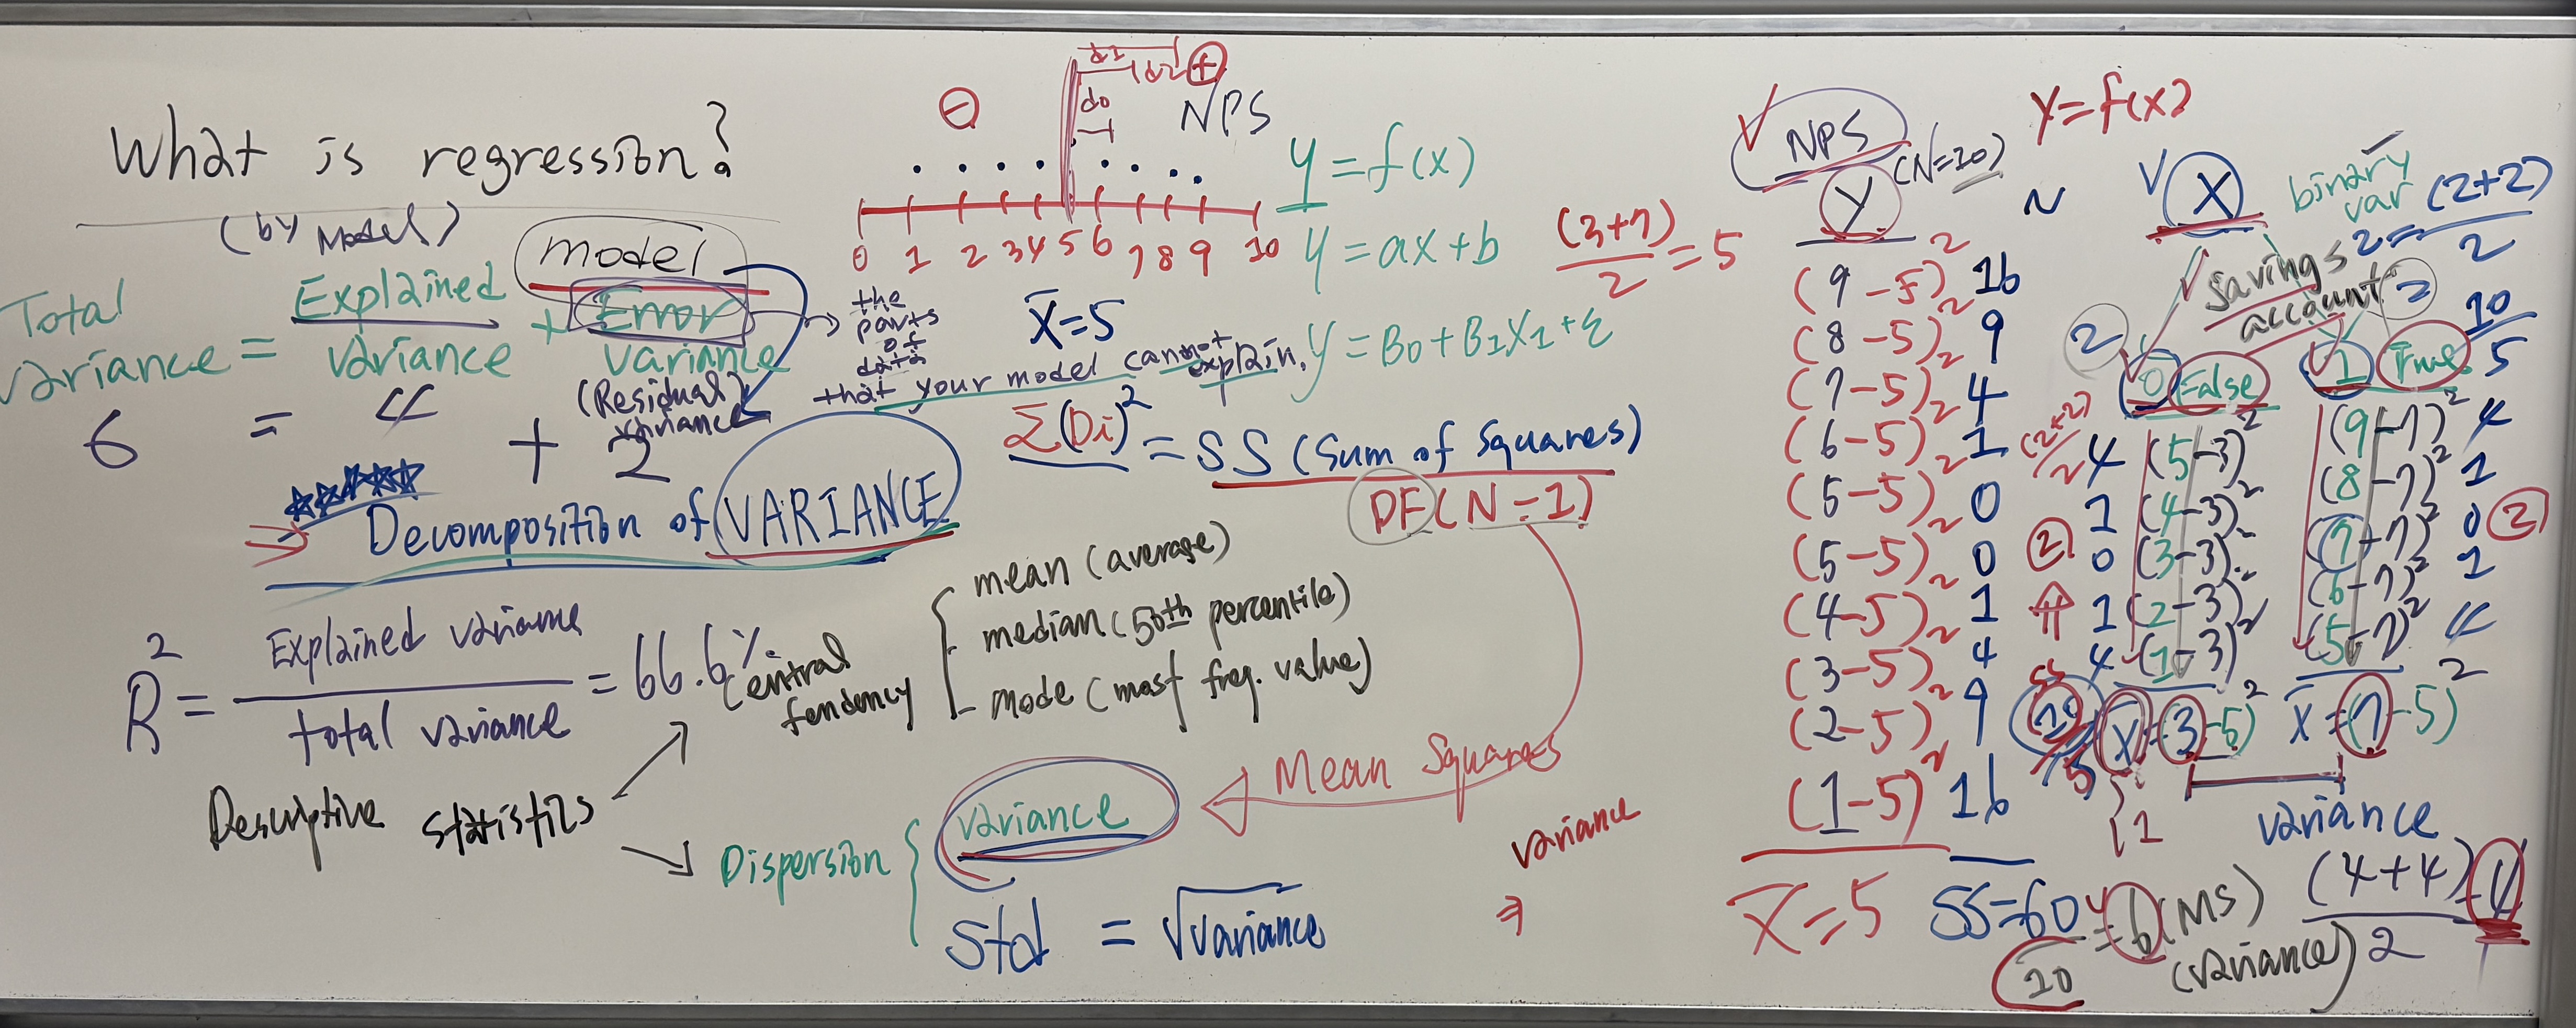 What is regression?
(by Model)
model
Total variance = Explained variance + Error variance
(Residual variance)
6 = 4 + 2
→ the parts of data that your model cannot explain.
⇒ Decomposition of VARIANCE
R² = Explained variance / total variance = 66.6%
Descriptive statistics
Central tendency
mean (average)
median (50th percentile)
mode (most freq. value)
Dispersion
variance
std = √variance
d1
d2 +
d0
−
NPS
0 1 2 3 4 5 6 7 8 9 10
X̄=5
y = f(x)
y = ax + b
y = B0 + B1X1 + ε
Σ(Di)² = SS (Sum of Squares)
DF (N-1)
Mean Squares
variance
⇒
(3+7)/2 = 5
NPS
Y (N=10)
~
(9-5)² 16
(8-5)² 9
(7-5)² 4
(6-5)² 1
(5-5)² 0
(5-5)² 0
(4-5)² 1
(3-5)² 4
(2-5)² 9
(1-5)² 16
X̄=5
SS=60
10
=6 (MS)
(variance)
Y=f(x)
X
binary var
2 = (2+2)/2
savings account
2
2
0 False
1 True
10
5
(2+2)/2
4 (5-3)²
1 (4-3)²
0 (3-3)²
1 (2-3)²
4 (1-3)²
2
SS
10/5
X̄=(3-5)²
(9-7)² 4
(8-7)² 1
(7-7)² 0
(6-7)² 1
(5-7)² 4
2
X̄=(7-5)²
variance
(4+4)/2 = 4